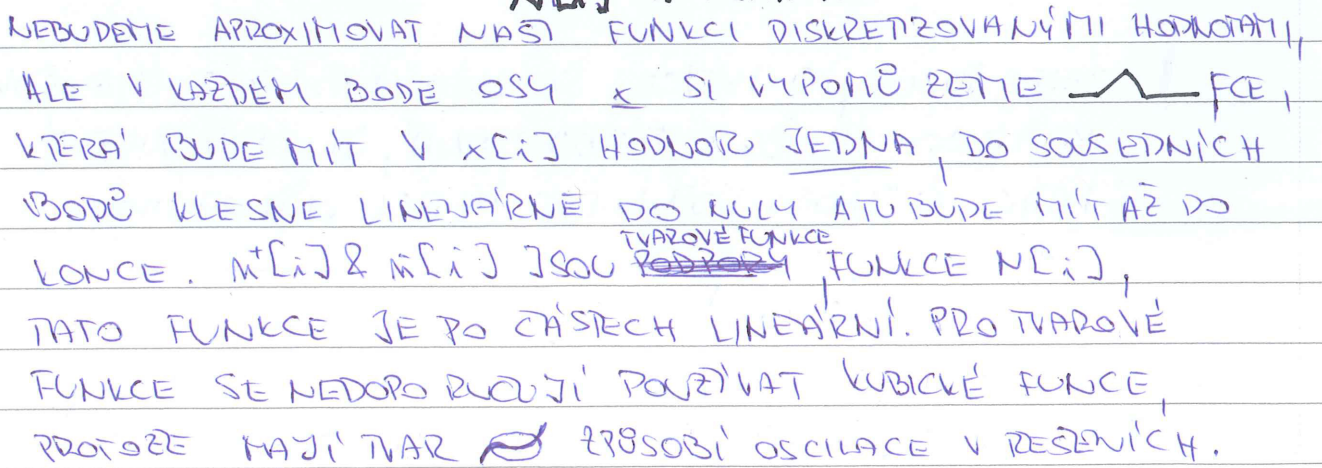 NEBUDEME APROXIMOVAT NAŠI FUNKCI DISKRETIZOVANÝMI HODNOTAMI,
ALE V KAŽDÉM BODĚ OSY x SI VYPOMŮŽEME FCE,
KTERÁ BUDE MÍT V x[i] HODNOTU JEDNA, DO SOUSEDNÍCH
BODŮ KLESNE LINENÁRNĚ DO NULY A TU BUDE MÍT AŽ DO
TVAROVÉ FUNKCE
KONCE. N⁺[i] & N⁻[i] JSOU PODPORY, FUNKCE N[i],
TATO FUNKCE JE PO ČÁSTECH LINEÁRNÍ. PRO TVAROVÉ
FUNKCE SE NEDOPORUČUJÍ POUŽÍVAT KUBICKÉ FUNCE,
PROTOŽE MAJÍ TVAR ZPŮSOBÍ OSCILACE V ŘEŠENÍCH.